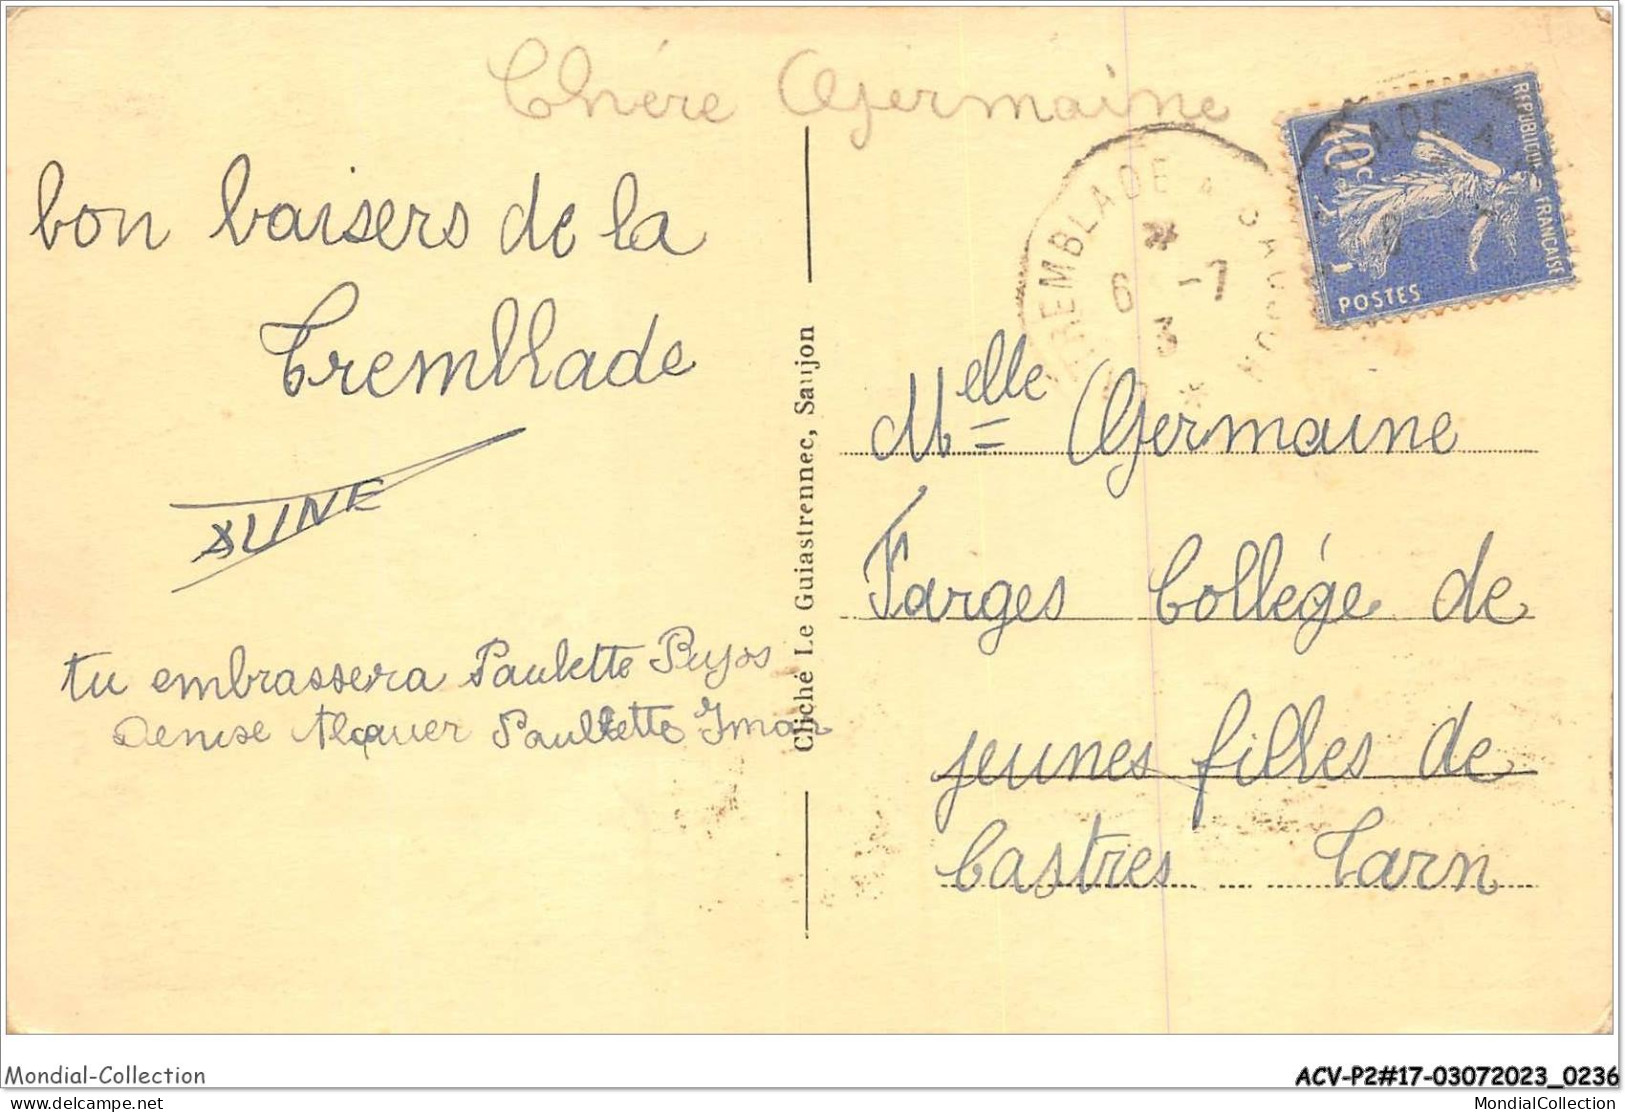 Chére Germaine
bon baisers de la
Tremblade
ALINE
tu embrassera Paulette Pujos
Denise Paulette
Cliché Le Guiastrennec, Saujon
REPUBLIQUE FRANCAISE
40c
POSTES
TREMBLADE A
6 -7
3
Melle Germaine
Farges Collége de
jeunes filles de
Castres Tarn
Mondial-Collection
ACV-P2#17-03072023_0236
delcampe.net
MondialCollection